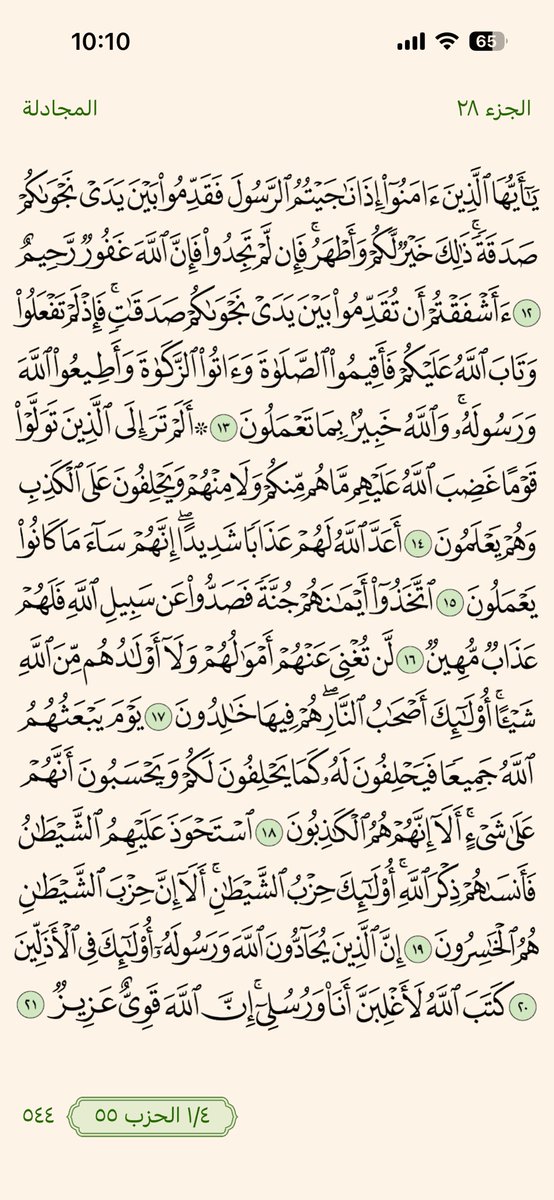 10:10
65
المجادلة
الجزء ٢٨
يَٰٓأَيُّهَا ٱلَّذِينَ ءَامَنُوٓا۟ إِذَا نَٰجَيْتُمُ ٱلرَّسُولَ فَقَدِّمُوا۟ بَيْنَ يَدَىْ نَجْوَىٰكُمْ
صَدَقَةً ۚ ذَٰلِكَ خَيْرٌ لَّكُمْ وَأَطْهَرُ ۚ فَإِن لَّمْ تَجِدُوا۟ فَإِنَّ ٱللَّهَ غَفُورٌ رَّحِيمٌ
١٢ ءَأَشْفَقْتُمْ أَن تُقَدِّمُوا۟ بَيْنَ يَدَىْ نَجْوَىٰكُمْ صَدَقَٰتٍ ۚ فَإِذْ لَمْ تَفْعَلُوا۟
وَتَابَ ٱللَّهُ عَلَيْكُمْ فَأَقِيمُوا۟ ٱلصَّلَوٰةَ وَءَاتُوا۟ ٱلزَّكَوٰةَ وَأَطِيعُوا۟ ٱللَّهَ
وَرَسُولَهُۥ ۚ وَٱللَّهُ خَبِيرٌۢ بِمَا تَعْمَلُونَ ١٣ ۞ أَلَمْ تَرَ إِلَى ٱلَّذِينَ تَوَلَّوْا۟
قَوْمًا غَضِبَ ٱللَّهُ عَلَيْهِم مَّا هُم مِّنكُمْ وَلَا مِنْهُمْ وَيَحْلِفُونَ عَلَى ٱلْكَذِبِ
وَهُمْ يَعْلَمُونَ ١٤ أَعَدَّ ٱللَّهُ لَهُمْ عَذَابًا شَدِيدًا ۖ إِنَّهُمْ سَآءَ مَا كَانُوا۟
يَعْمَلُونَ ١٥ ٱتَّخَذُوٓا۟ أَيْمَٰنَهُمْ جُنَّةً فَصَدُّوا۟ عَن سَبِيلِ ٱللَّهِ فَلَهُمْ
عَذَابٌ مُّهِينٌ ١٦ لَّن تُغْنِىَ عَنْهُمْ أَمْوَٰلُهُمْ وَلَآ أَوْلَٰدُهُم مِّنَ ٱللَّهِ
شَيْـًٔا ۚ أُو۟لَٰٓئِكَ أَصْحَٰبُ ٱلنَّارِ ۖ هُمْ فِيهَا خَٰلِدُونَ ١٧ يَوْمَ يَبْعَثُهُمُ
ٱللَّهُ جَمِيعًا فَيَحْلِفُونَ لَهُۥ كَمَا يَحْلِفُونَ لَكُمْ وَيَحْسَبُونَ أَنَّهُمْ
عَلَىٰ شَىْءٍ ۚ أَلَآ إِنَّهُمْ هُمُ ٱلْكَٰذِبُونَ ١٨ ٱسْتَحْوَذَ عَلَيْهِمُ ٱلشَّيْطَٰنُ
فَأَنسَىٰهُمْ ذِكْرَ ٱللَّهِ ۚ أُو۟لَٰٓئِكَ حِزْبُ ٱلشَّيْطَٰنِ ۚ أَلَآ إِنَّ حِزْبَ ٱلشَّيْطَٰنِ
هُمُ ٱلْخَٰسِرُونَ ١٩ إِنَّ ٱلَّذِينَ يُحَآدُّونَ ٱللَّهَ وَرَسُولَهُۥٓ أُو۟لَٰٓئِكَ فِى ٱلْأَذَلِّينَ
٢٠ كَتَبَ ٱللَّهُ لَأَغْلِبَنَّ أَنَا۠ وَرُسُلِىٓ ۚ إِنَّ ٱللَّهَ قَوِىٌّ عَزِيزٌ ٢١
١/٤ الحزب ٥٥
٥٤٤